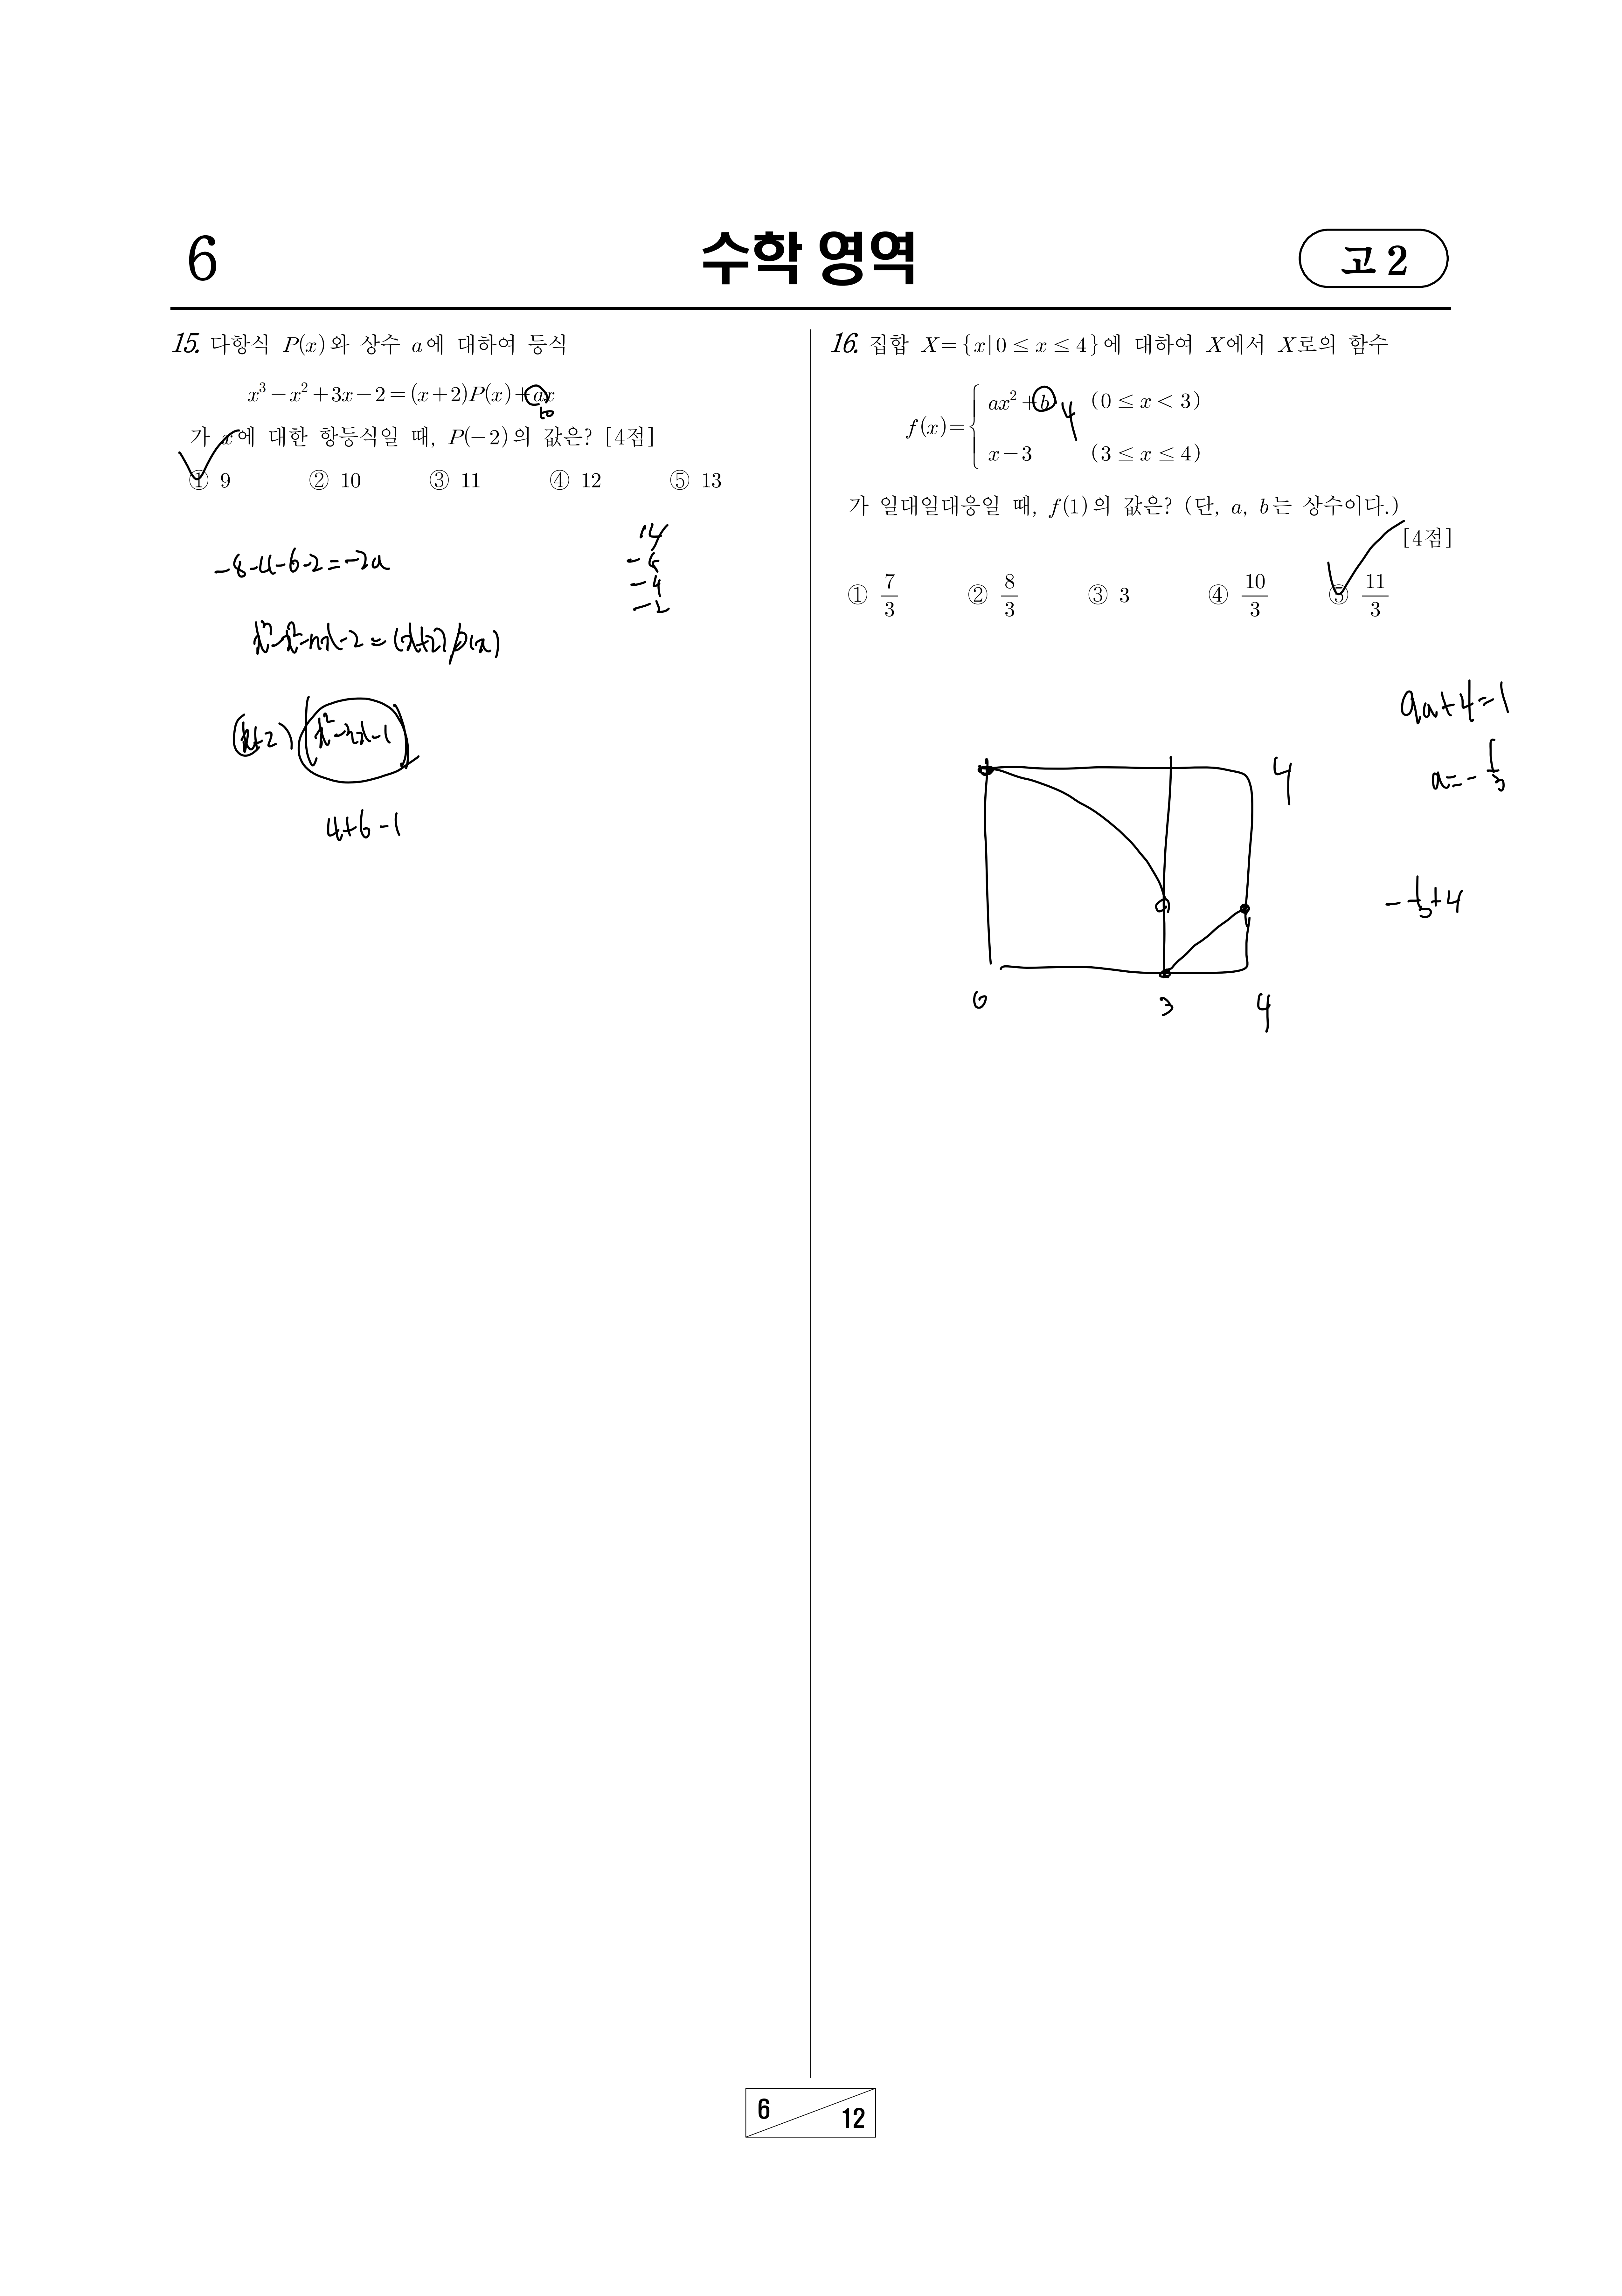 6
수학 영역
고 2
15. 다항식 P(x)와 상수 a에 대하여 등식
x³-x²+3x-2=(x+2)P(x)+ax
10
가 x에 대한 항등식일 때, P(-2)의 값은? [4점]
① 9 ② 10 ③ 11 ④ 12 ⑤ 13
-8-4-6-2=-2a
14
-6
-4
-2
(x+2)(x²-3x-1)
4+6-1
16. 집합 X={x|0≤x≤4}에 대하여 X에서 X로의 함수
f(x)={ ax²+b (0≤x<3)
4
x-3 (3≤x≤4)
가 일대일대응일 때, f(1)의 값은? (단, a, b는 상수이다.)
[4점]
① 7/3 ② 8/3 ③ 3 ④ 10/3 ⑤ 11/3
9a+4=1
a=-1/3
4
-1/3+4
0 3 4
6 12